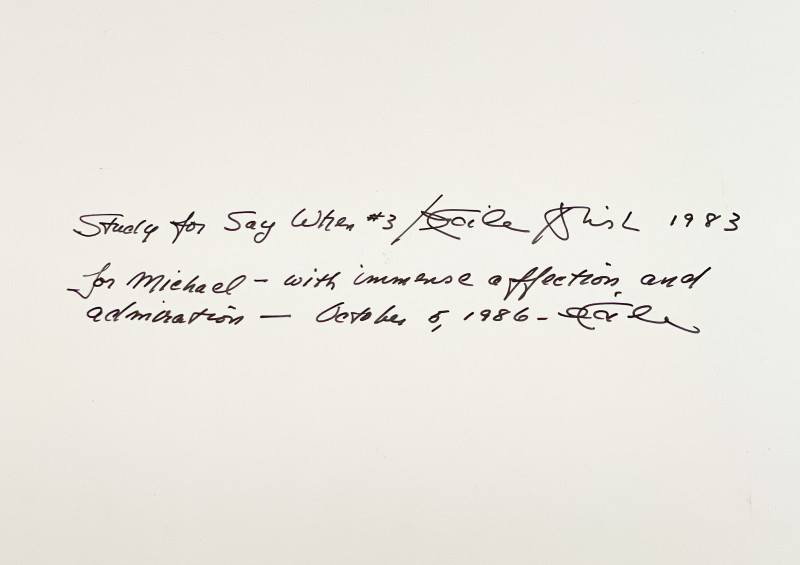 Study for Say When #3 / 1983
for Michael – with immense affection and
admiration — October 5, 1986 –